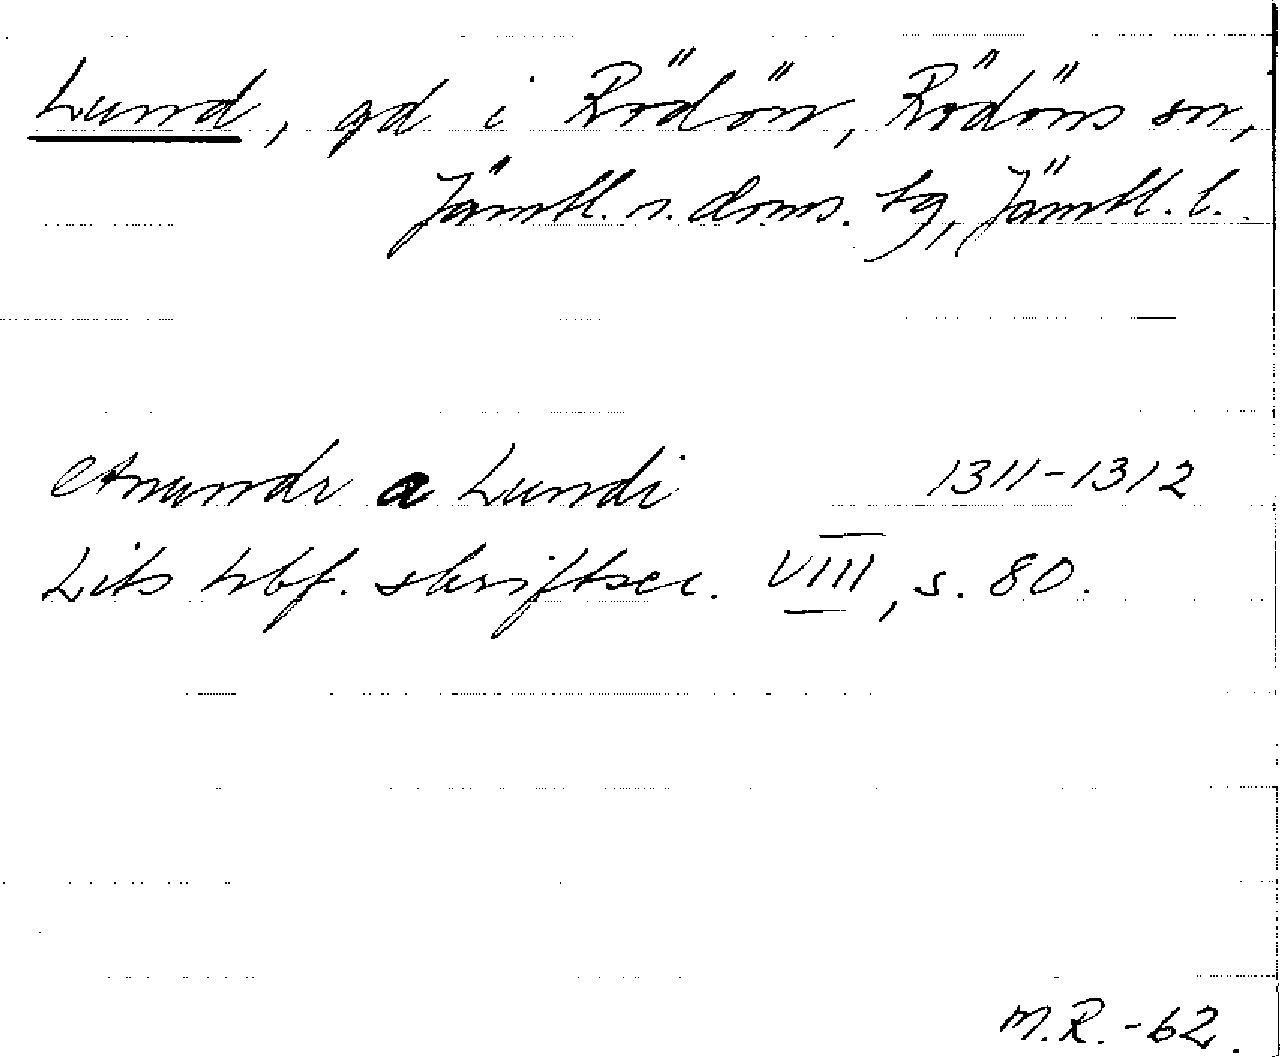 Lund, gd i Rödön, Rödöns sn,
Jämtl. n. doms. tg, Jämtl. l.
Anundr a Lundi 1311-1312
Lits hbf. skriftser. VIII, s. 80.
M.R. -62.